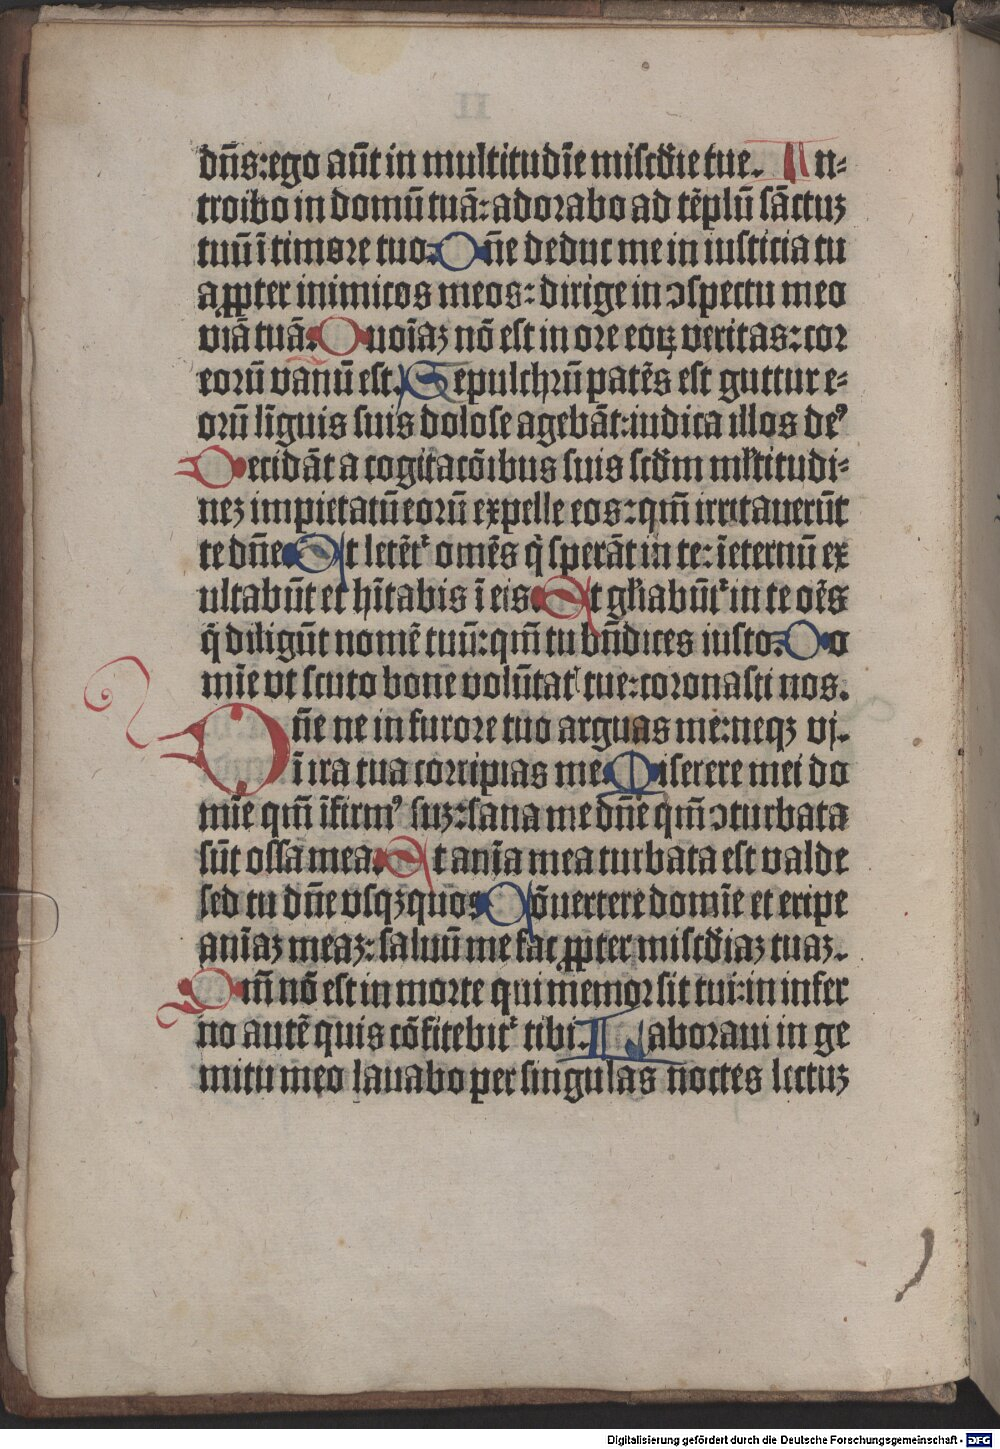 II
dn̄s:ego aūt in multitudīe miſcd̄ie tue. In⸗
troibo in domū tuā:adorabo ad tēplū ſāctuꝫ
tuū ī timore tuo:Dn̄e deduc me in iuſticia tu
a ꝓpter inimicos meos:dirige in ↄſpectu meo
viā tuā.Quoīaꝫ nō eſt in ore eoꝝ veritas:cor
eorū vanū eſt.Sepulchrū patēs eſt guttur e⸗
orū līguis ſuis doloſe agebāt:iudica illos deꝰ
Decidāt a cogitacōibus ſuis ſcd̄m ml̄titudi⸗
neꝫ impietatū eorū expelle eos:qm̄ irritauerūt
te dn̄e Et letēt᷑ omēs q̇ ſperāt in te:īeternū ex
ultabūt et hītabis ī eis.Et gl̄iabūt᷑ in te oēs
q̇ diligūt nomē tuū:qm̄ tu bn̄dices iuſto.Do
mīe vt ſcuto bone volūtatꝭ tue:coronaſti nos.
Dn̄e ne in furore tuo arguas me:neqꝫ vj.
Dī ira tua corripias me.Miſerere mei do
mīe qm̄ īfirmꝰ ſuꝫ:ſana me dn̄e qm̄ ↄturbata
ſūt oſſa mea.Et anīa mea turbata eſt valde
ſed tu dn̄e vſqꝫquos Cōuertere domīe et eripe
anīaꝫ meaꝫ:ſaluū me fac ꝓpter miſcd̄iaꝫ tuaꝫ.
Qm̄ nō eſt in morte qui memor ſit tui:in infer
no autē quis cōfitebit᷑ tibi.Laboraui in ge
mitu meo lauabo per ſingulas noctes lectuꝫ
Digitalisierung gefördert durch die Deutsche Forschungsgemeinschaft - DFG